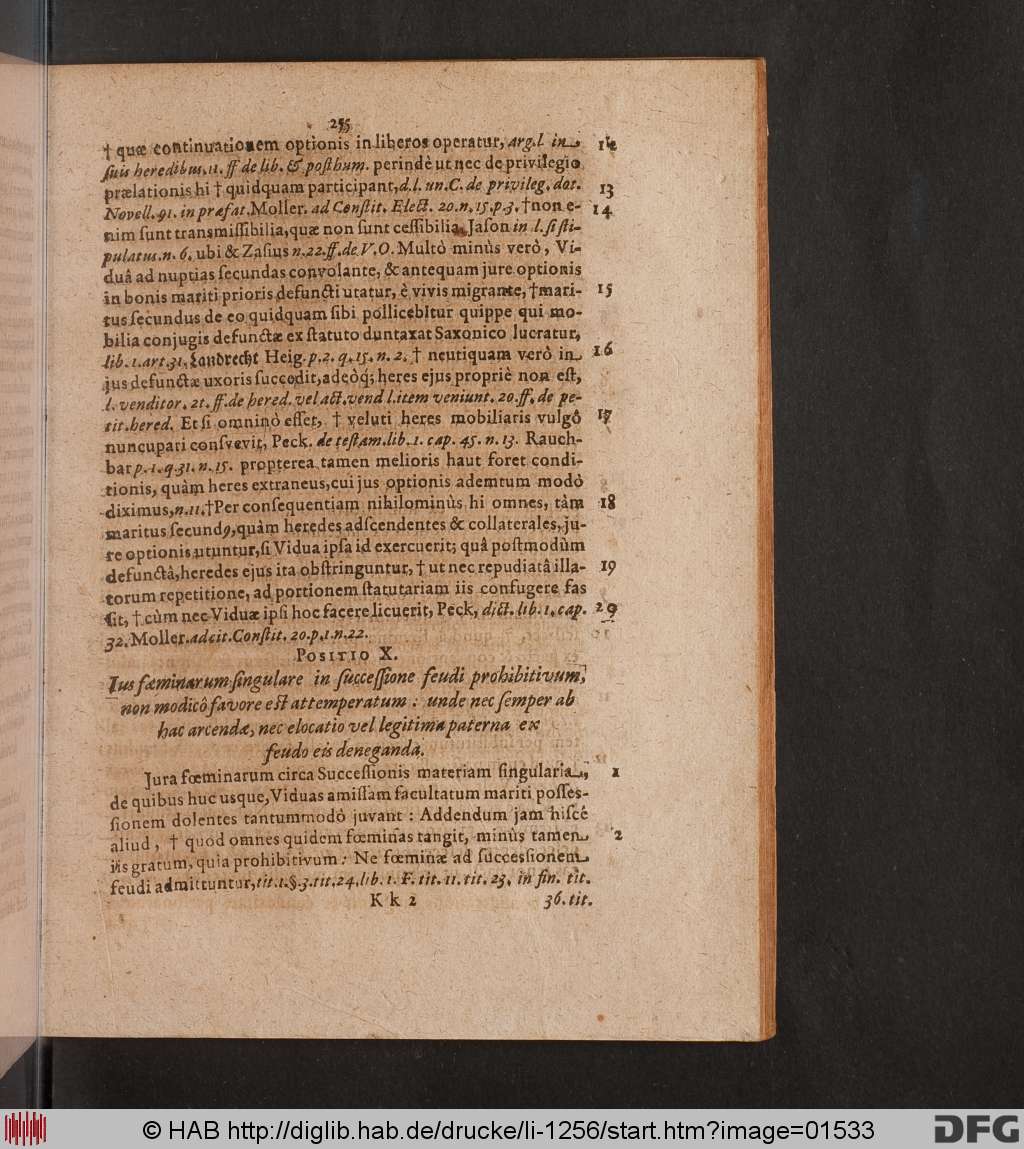 255
† quæ continuationem optionis in liberos operatur, arg. l in 12
suis heredibus. 11. ff de lib. & posthum. perindè ut nec de privilegio
prælationis hi † quidquam participant, d. l. un. C. de privileg. dot. 13
Novell. 91. in præfat. Moller. ad Constit. Elect. 20. n. 15. p. 3. † non e- 14
nim sunt transmissibilia, quæ non sunt cessibilia, Jason in l. si sti-
pulatus. n. 6. ubi & Zasius n. 22. ff. de V. O. Multò minùs verò, Vi-
duâ ad nuptias secundas convolante, & antequam jure optionis
in bonis mariti prioris defuncti utatur, è vivis migrante, † mari- 15
tus secundus de eo quidquam sibi pollicebitur quippe qui mo-
bilia conjugis defunctæ ex statuto duntaxat Saxonico lucratur,
lib. 1. art. 31. Landrecht Heig. p. 2. q. 15. n. 2. † neutiquam verò in 16
jus defunctæ uxoris succedit, adeòq; heres ejus propriè non est,
l. venditor. 2t. ff. de hered. vel act. vend l. item veniunt. 20. ff. de pe-
tit. hered. Et si omninò esset, † veluti heres mobiliaris vulgô 17
nuncupari consvevit, Peck. de testam. lib. 1. cap. 45. n. 13. Rauch-
bar p. 1. q. 31. n. 15. propterea tamen melioris haut foret condi-
tionis, quàm heres extraneus, cui jus optionis ademtum modò
diximus, n. 11. † Per consequentiam nihilominùs hi omnes, tàm 18
maritus secundꝰ, quàm heredes adscendentes & collaterales, ju-
re optionis utuntur, si Vidua ipsa id exercuerit; quâ postmodùm
defunctâ, heredes ejus ita obstringuntur, † ut nec repudiatâ illa- 19
torum repetitione, ad portionem statutariam iis confugere fas
sit, † cùm nec Viduæ ipsi hoc facere licuerit, Peck, dict. lib. 1. cap. 20
32. Moller. ad cit. Constit. 20. p. 1. n. 22.
POSITIO X.
Ius fœminarum singulare in successione feudi prohibitivum,
non modicô favore est attemperatum : unde nec semper ab
hac arcendæ, nec elocatio vel legitima paterna ex
feudo eis deneganda.
Jura fœminarum circa Successionis materiam singularia, 1
de quibus huc usque, Viduas amissam facultatum mariti posses-
sionem dolentes tantummodò juvant : Addendum jam hiscè
aliud, † quod omnes quidem fœminas tangit, minùs tamen 2
iis gratum, quia prohibitivum : Ne fœminæ ad successionem
feudi admittuntur, tit. 1. §. 3. tit. 24. lib. 1. F. tit. 11. tit. 23. in fin. tit.
K k 2 36. tit.
© HAB http://diglib.hab.de/drucke/li-1256/start.htm?image=01533
DFG